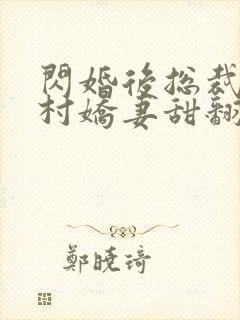 閃婚後总裁
村嬌妻甜翻
鄭曉琦